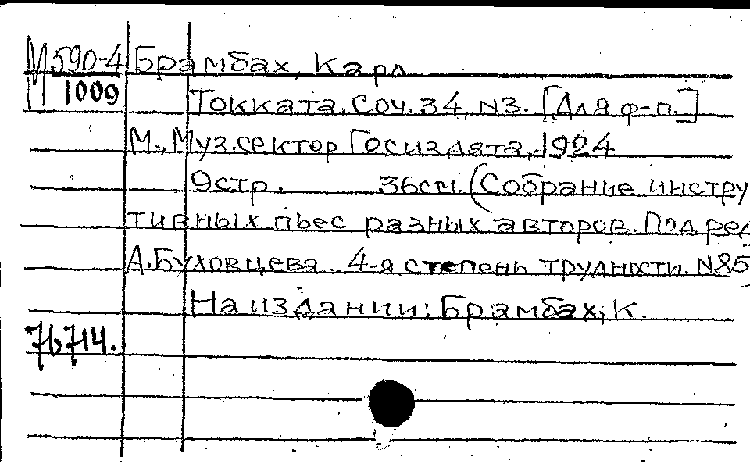 М 590-4 Брамбах, Карл
1009
Токката. Соч. 34, N3. [Для ф-п.]
М., Муз. сектор Госиздата, 1924
9 стр. 36 см (Собрание инстру
тивных пьес разных авторов. Под ред
А. Буховцева. 4-я степень трудности. N85)
На издании: Брамбах, К.
76714.